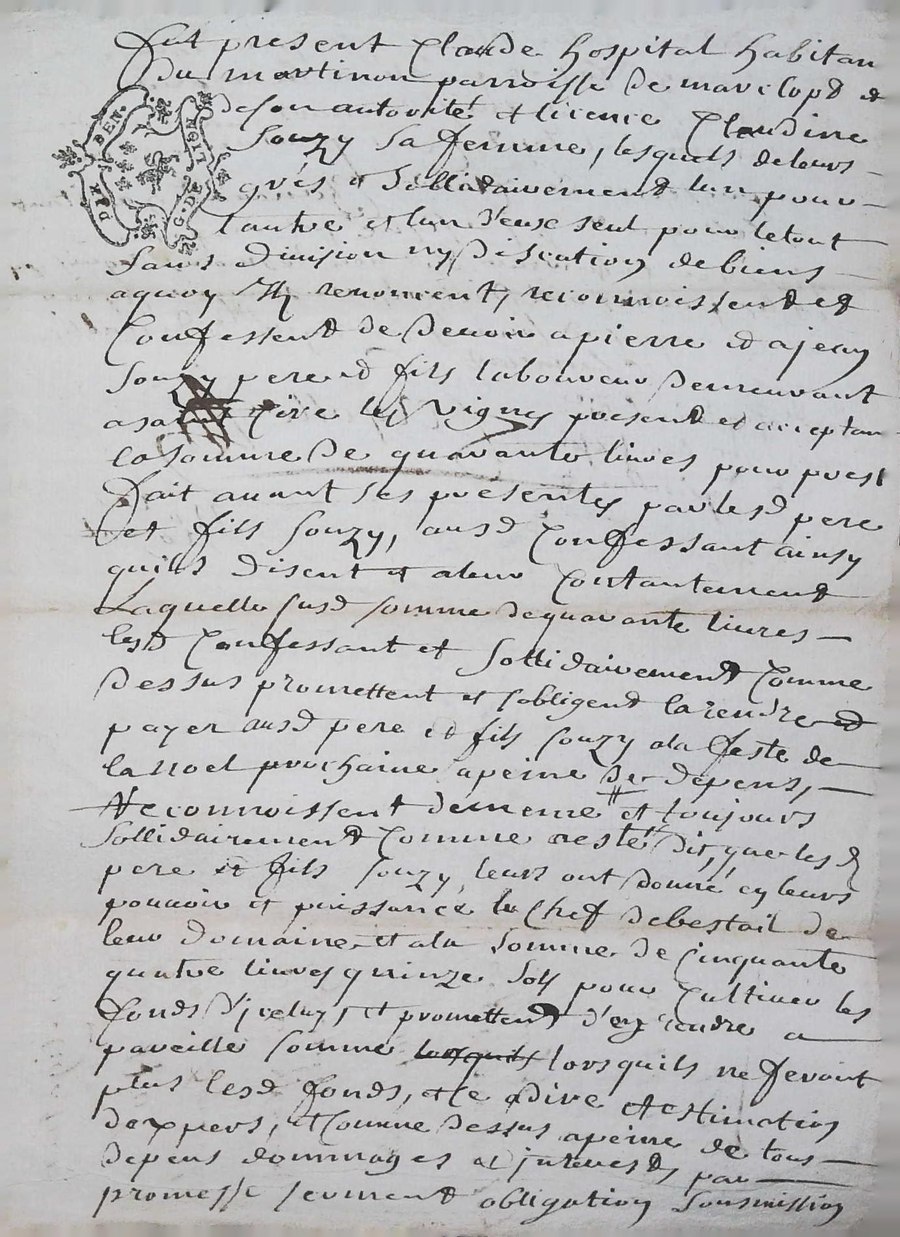 fut present Claude hospital habitan
du martinon parroisse de mavilop &
de son autorité et licence Claudine
Souzy sa femme, lesquels de leurs
grés et sollidairement lun pour
lautre et lun d'eux seul pour le tout
sans division ny discution de biens
aquoy ils renoncent, reconnoissent et
confessent de devoir a pierre et a jean
Souzy pere et fils laboureur demeurant
a saint les vignes present et acceptan
la somme de quarante livres pour prest
fait avant ses presentes par lesd pere
et fils Souzy, ausd Confessant ainsy
quils disent et aleur Contantement
Laquelle susd somme de quarante livres
lesd Confessant et sollidairement Comme
dessus promettent et sobligent la rendre et
payer ausd pere et fils Souzy ala feste de
la noel prochaine apeine de depens,
Reconnoissent de meme et toujours
sollidairement Comme aesté dit, que lesd
pere et fils Souzy, leurs ont donné en leurs
pouvoir et puissance le Chef de bestail de
leur domaine et ala somme de Cinquante
quatre livres quinze sols pour Cultiver les
fonds d'iceluy, et promettent d'en rendre a
pareille somme lorsquils lorsquils ne feront
plus lesd fonds, et ce adire et estimation
dexpers, et Comme dessus apeine de tous
depens dommages et interests par
promesse serment obligation sousmission
DIX BEN.
G. DE LION